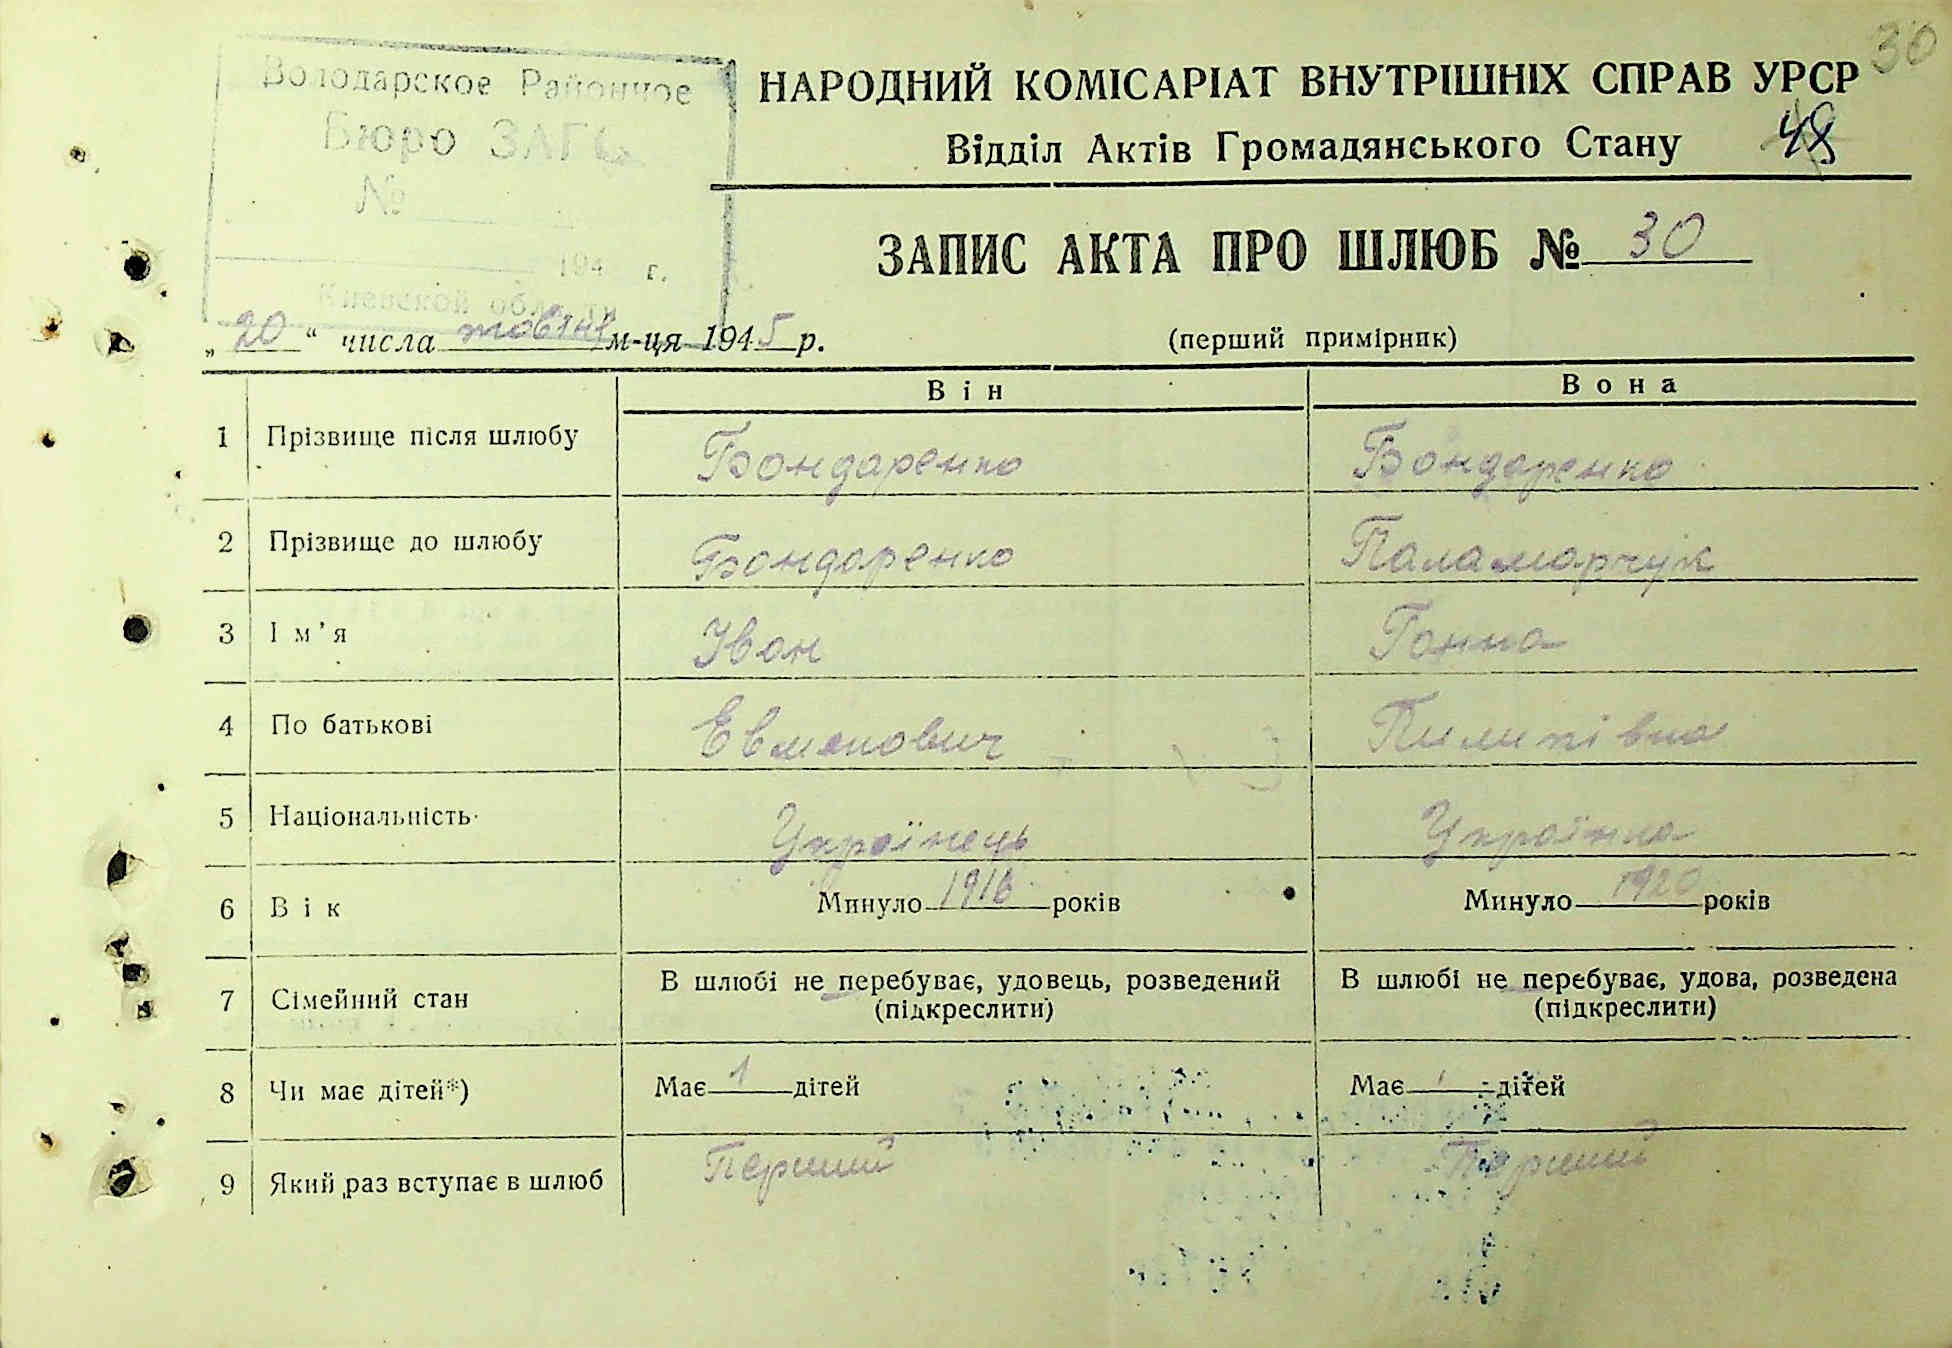 30
Володарское Районное
Бюро ЗАГСа
№
194 г.
Киевской области
НАРОДНИЙ КОМІСАРІАТ ВНУТРІШНІХ СПРАВ УРСР
Відділ Актів Громадянського Стану
ЗАПИС АКТА ПРО ШЛЮБ № 30
„20“ числа жовтня м-ця 1945 р. (перший примірник)
Він Вона
1 Прізвище після шлюбу Бондаренко Бондаренко
2 Прізвище до шлюбу Бондаренко Паламарчук
3 Ім’я Іван Ганна
4 По батькові Евменович Пилипівна
5 Національність Українець Українка
6 Вік Минуло 1916 років Минуло 1920 років
7 Сімейний стан В шлюбі не перебуває, удовець, розведений (підкреслити) В шлюбі не перебуває, удова, розведена (підкреслити)
8 Чи має дітей*) Має 1 дітей Має дітей
9 Який раз вступає в шлюб Перший Перший